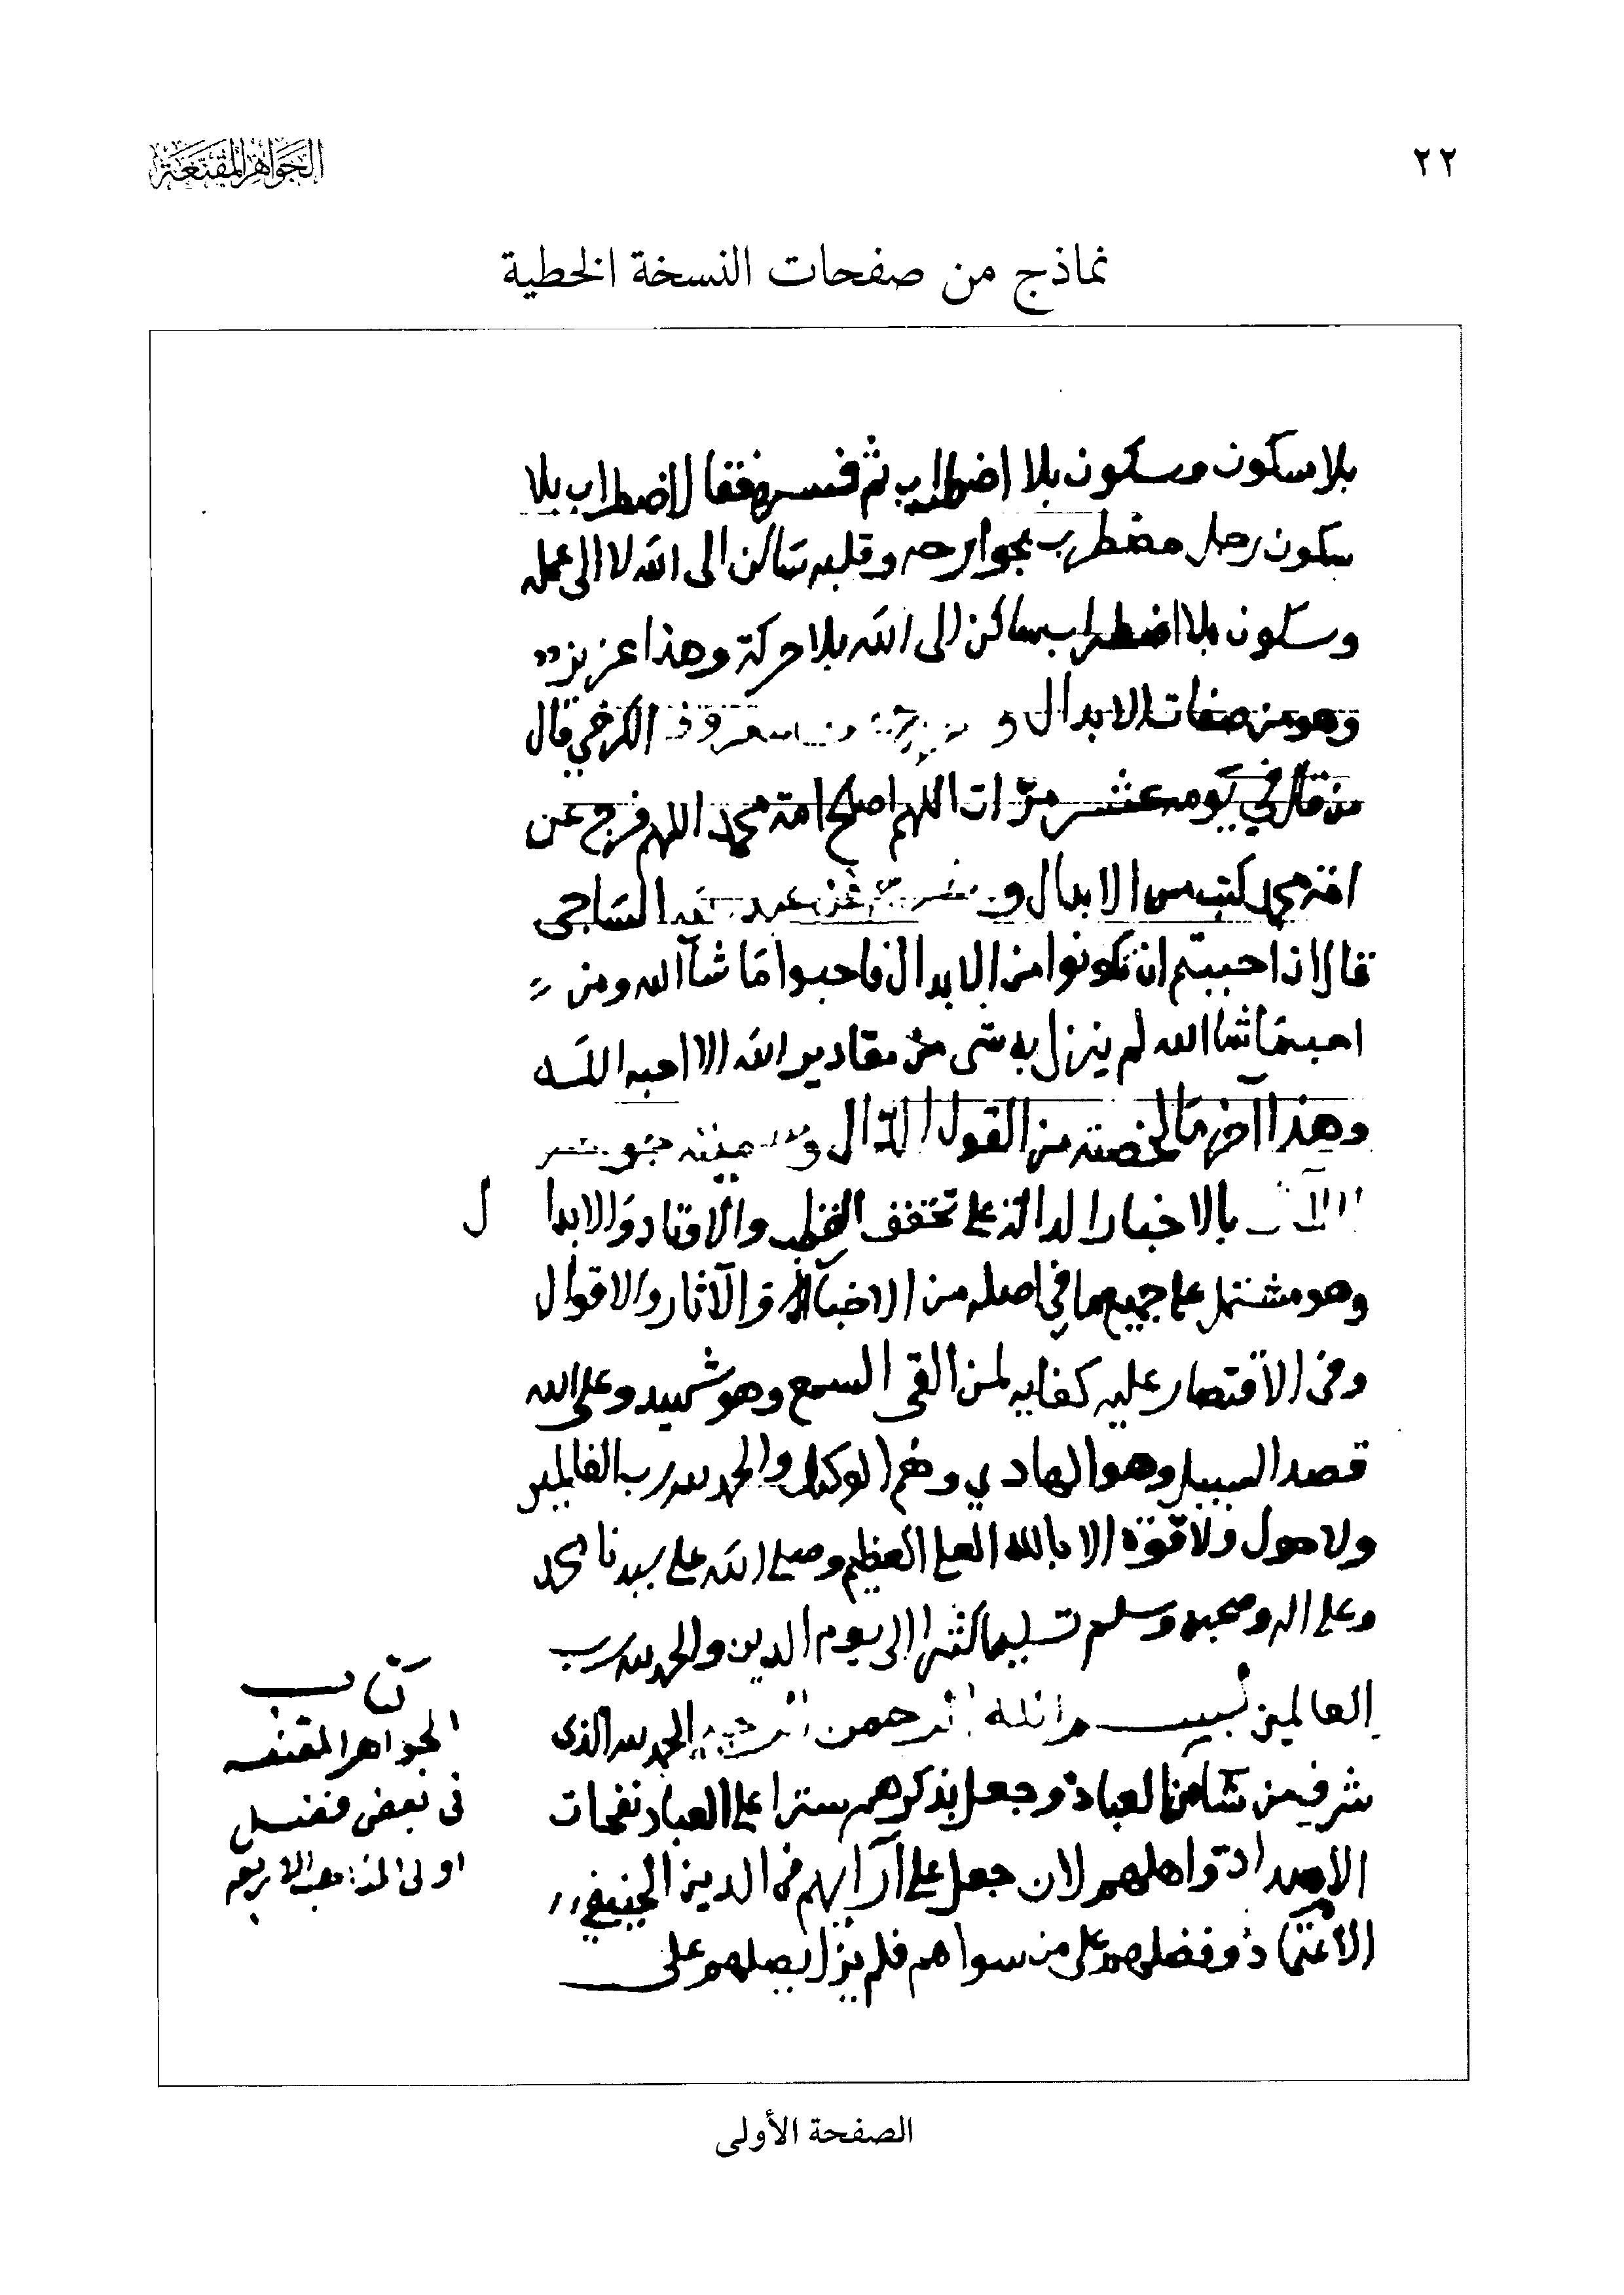 ٢٢
الجواهر المقتنعة
نماذج من صفحات النسخة الخطية
بلا سكون وسكون بلا اضطراب ثم فسره فقال اضطراب بلا
سكون رجل مضطرب بجوارحه وقلبه ساكن الى الله لا الى عمله
وسكون بلا اضطراب ساكن الى الله بلا حركة وهذا عزيز
وهو من صفات الابدال و معروف الكرخي قال
من قال في يومه عشر مرات اللهم اصلح امة محمد اللهم فرج عن
امة محمد كتب من الابدال و عن الساجى
قال اذا احببتم ان تكونوا من الابدال فاحبوا ما شآ الله ومن
احب ما شا الله لم ينزل به شى من مقادير الله الا احبه اللـه
وهذا آخر ما لخصته من القول الدال و
بالاخبار الدالة على تحقق القطب والاوتاد والابدا ل
وهو مشتمل على جميع ما في اصله من الاخبار والآثار والاقوال
وفى الاقتصار عليه كفايه لمن القى السمع وهو شهيد وعلى الله
قصد السبيل وهو الهادي ونعم الوكيل والحمد لله رب العالمين
ولا حول ولا قوة الا بالله العلى العظيم وصلى الله على سيدنا محمد
وعلى اله وصحبه وسلم تسليما كثيرا الى يوم الدين والحمد لله رب
العالمين بسم الله الرحمن الرحيم الحمد لله الذى
شرف من شا من العباد وجعل بذكرهم سترا على العباد نفحات
الامداد واهلهم لان جعل على آرايهم فى الدين الحنيفي
الاعتماد وفضلهم على من سواهم فلم يزل يصلهم على
كتاب
الجواهر المقتنعه
فى بعض فضل
اولى المذاهب الاربعه
الصفحة الأولى